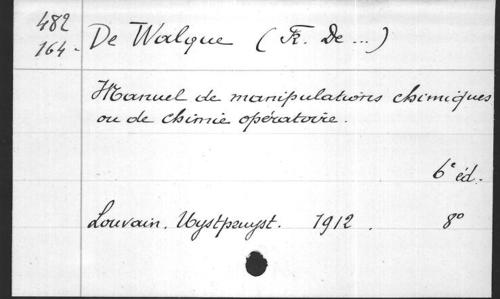 482
164 - De Walque (Fr. De ...)
Manuel de manipulations chimiques
ou de chimie opératoire.
6e éd.
Louvain. Uystpruyst. 1912. 8°